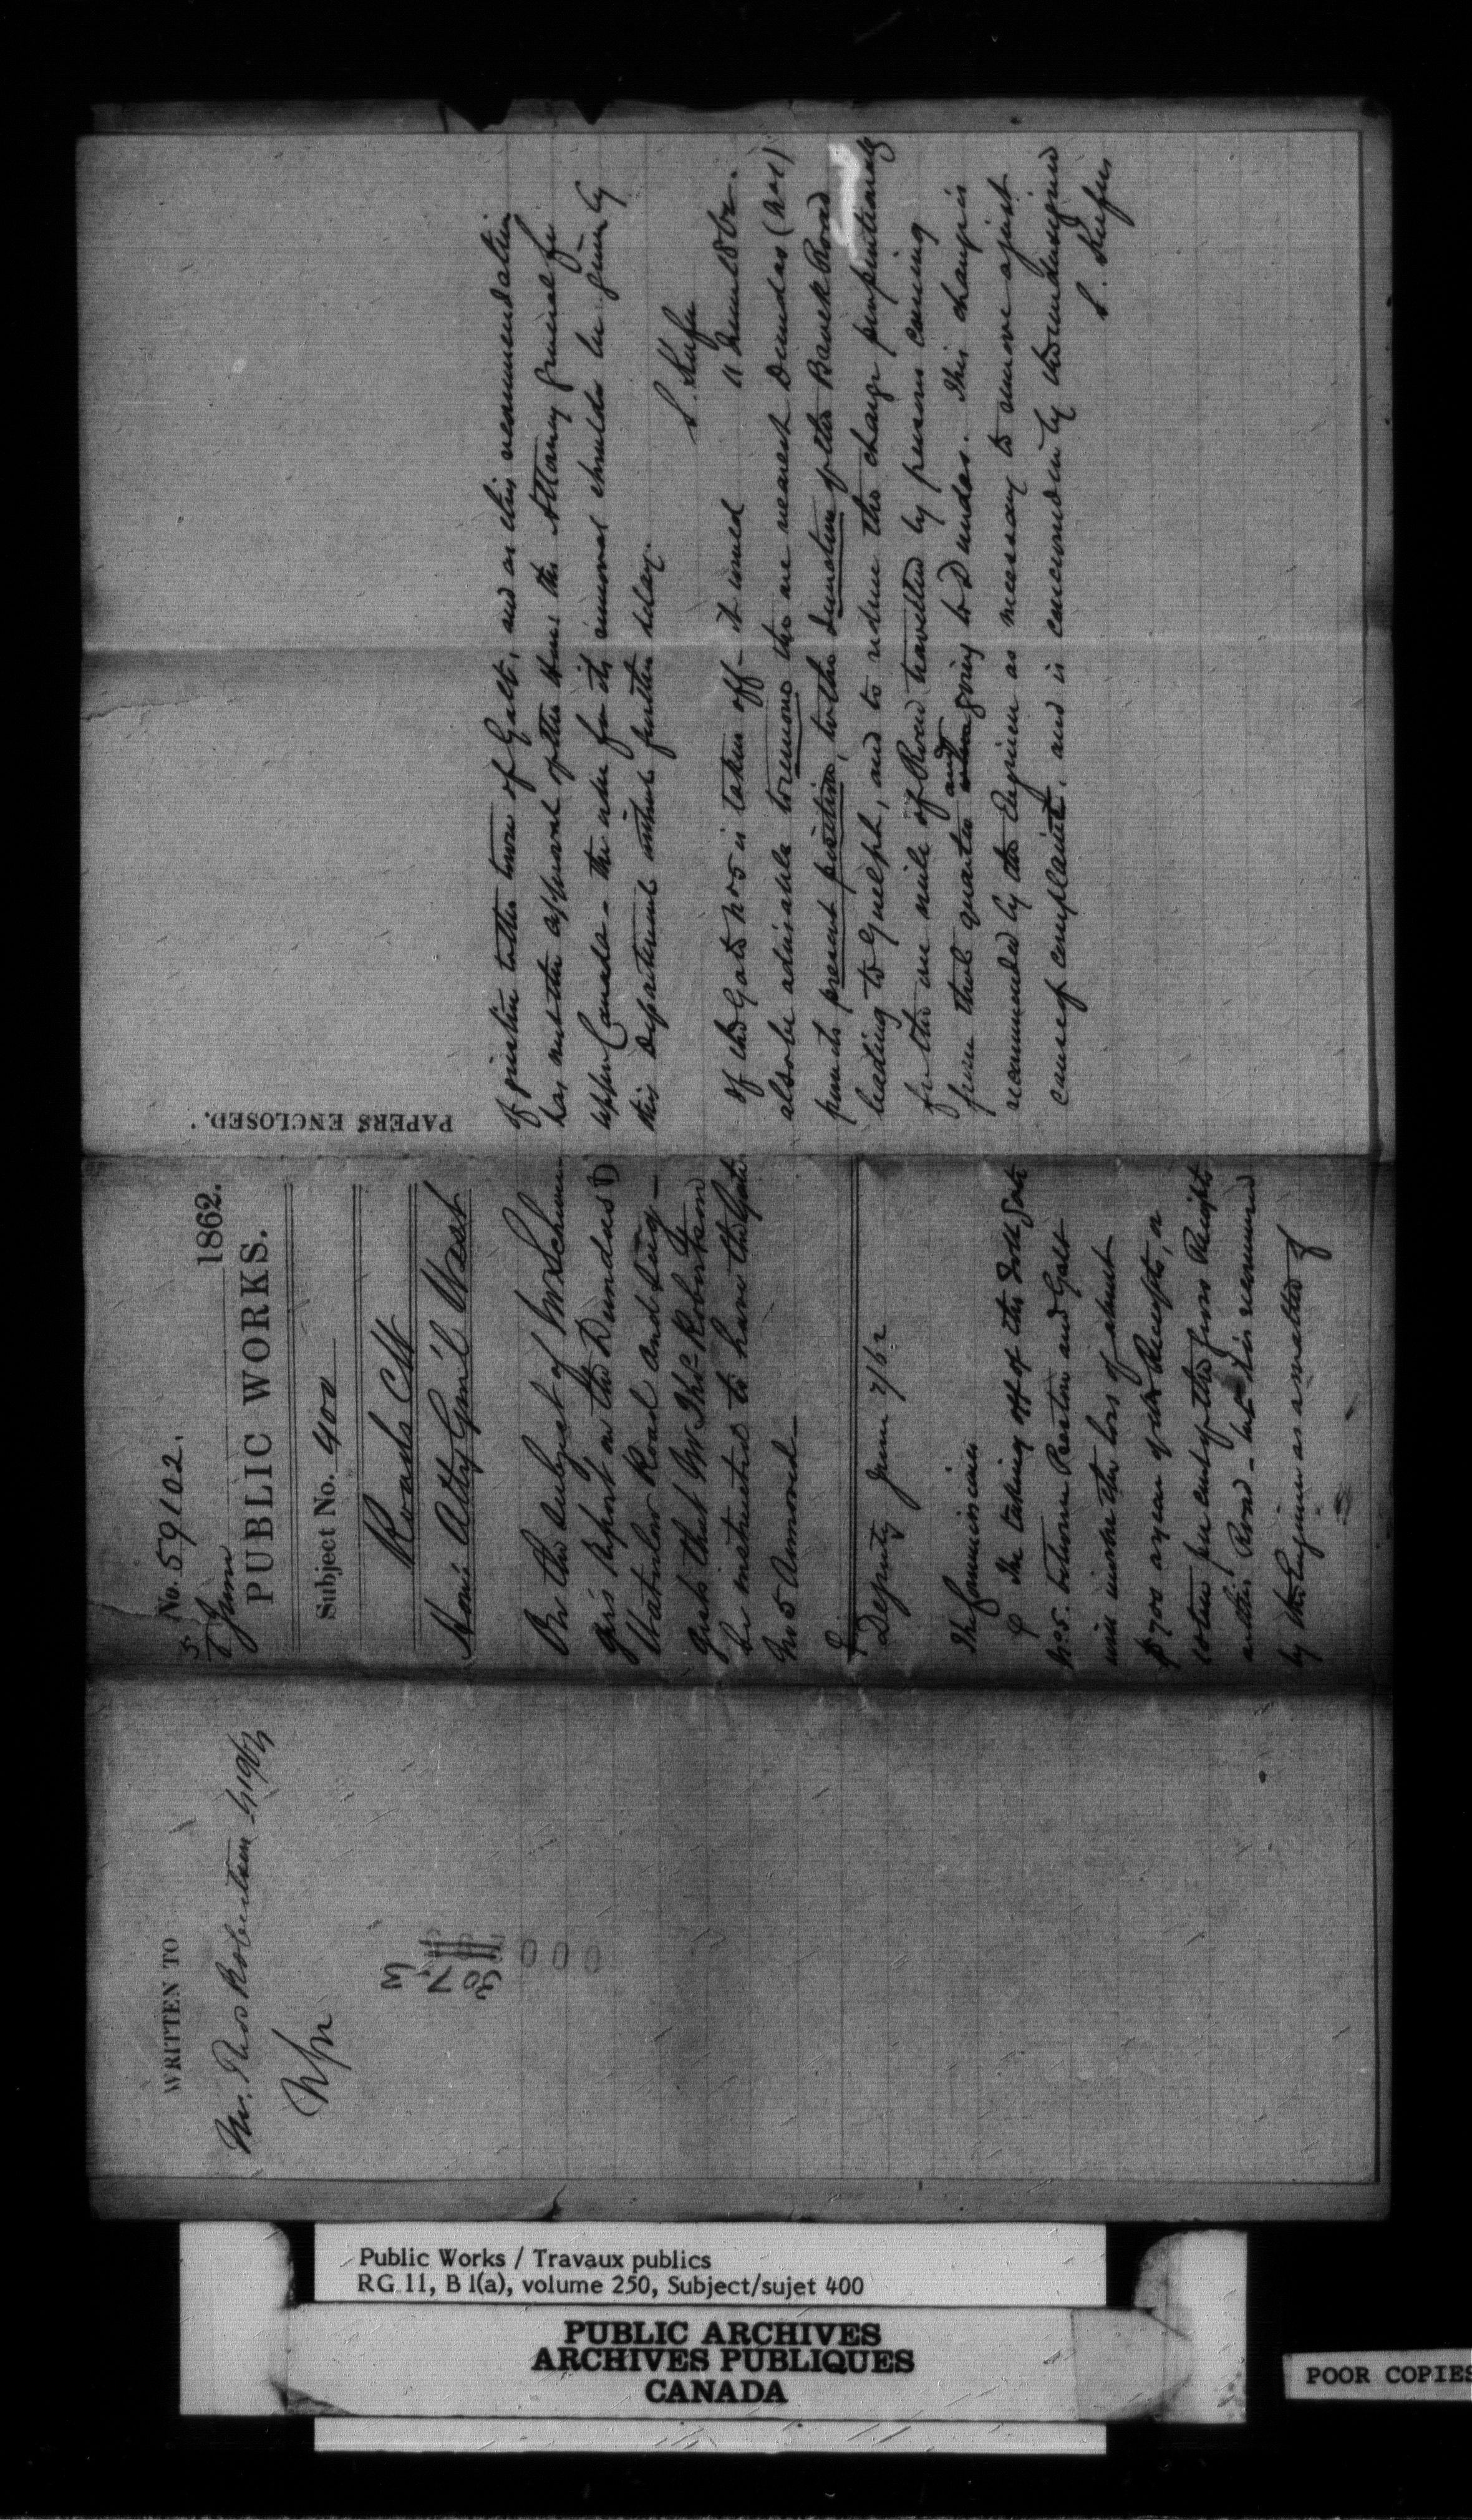 WRITTEN TO
Mr. Thos Robertson
No. 59102.
5 June 1862.
PUBLIC WORKS.
Subject No. 400
Roads CW
Hon. Atty Gen'l West
On the subject of Mr
ger's report on the Dundas &
Waterloo Road and sug-
gests that Mr Thos Robertson
be instructed to have the Gate
No 5 removed
Deputy June 7/62
The Commissioner
The taking off of the Toll Gate
No. 5. between Preston and Galt
will involve the loss of about
$700 a year of receipts, or
ten per cent of the gross Receipts
on this Road - but it is recommended
by the Engineer as a matter of
PAPERS ENCLOSED.
of justice to the town of Galt, and as this recommendation
has met the approval of the Hon. the Attorney General for
Upper Canada - the order for its removal should be given by
this Department without further delay.
11 June 1862.
If the Gate No 5 is taken off - it would
also be advisable to remove the one nearest Dundas (No 1)
from its present position, to the junction of the Brock Road
leading to Guelph, and to reduce the charge proportionately
for the one mile of Road travelled by persons coming
from that quarter and going to Dundas. This change is
recommended by the Engineer as necessary to remove a just
cause of complaint, and is concurred in by the undersigned
Public Works / Travaux publics
RG 11, B 1(a), volume 250, Subject/sujet 400
PUBLIC ARCHIVES
ARCHIVES PUBLIQUES
CANADA
POOR COPIES